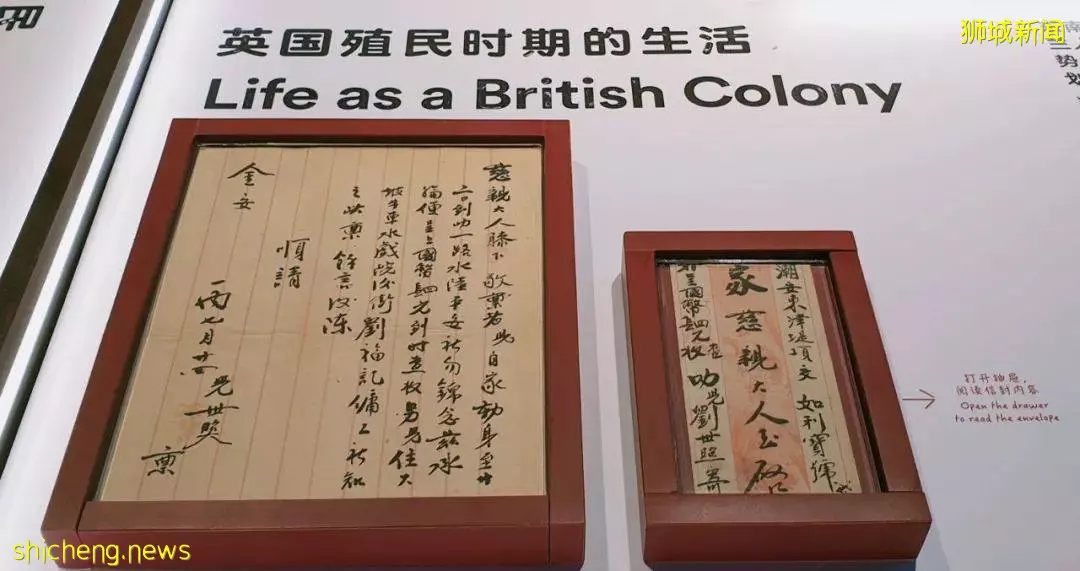 狮城新闻
英国殖民时期的生活
Life as a British Colony
慈親大人膝下 敬禀者 此自家動身至廿
到叻一路水陸平安祈勿錦念茲承
輪便呈上國幣四元到时查收男是住大
坡牛車水戲院後街劉福記傭工祈知
之 此禀 餘言後陳
順請
金安
丙七月廿四 兒世照 禀
潮安東津堤頂交 如利寶號
家慈親大人玉啟
外呈國幣四元查收 叻 劉世照寄
打开抽屉,
阅读信封内容
Open the drawer
to read the envelope
shicheng.news